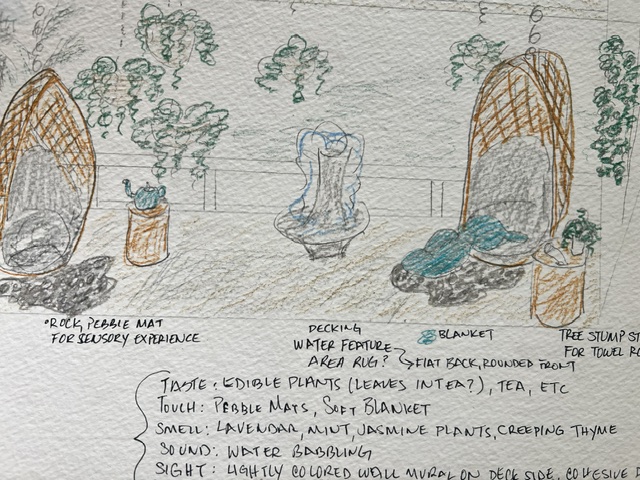 •ROCK, PEBBLE MAT
FOR SENSORY EXPERIENCE
DECKING
WATER FEATURE
AREA RUG?
FLAT BACK, ROUNDED FRONT
BLANKET
TREE STUMP
FOR TOWEL
TASTE: EDIBLE PLANTS (LEAVES IN TEA?), TEA, ETC
TOUCH: PEBBLE MATS, SOFT BLANKET
SMELL: LAVENDAR, MINT, JASMINE PLANTS, CREEPING THYME
SOUND: WATER BABBLING
SIGHT: LIGHTLY COLORED WALL MURAL ON DECK SIDE, COHESIVE